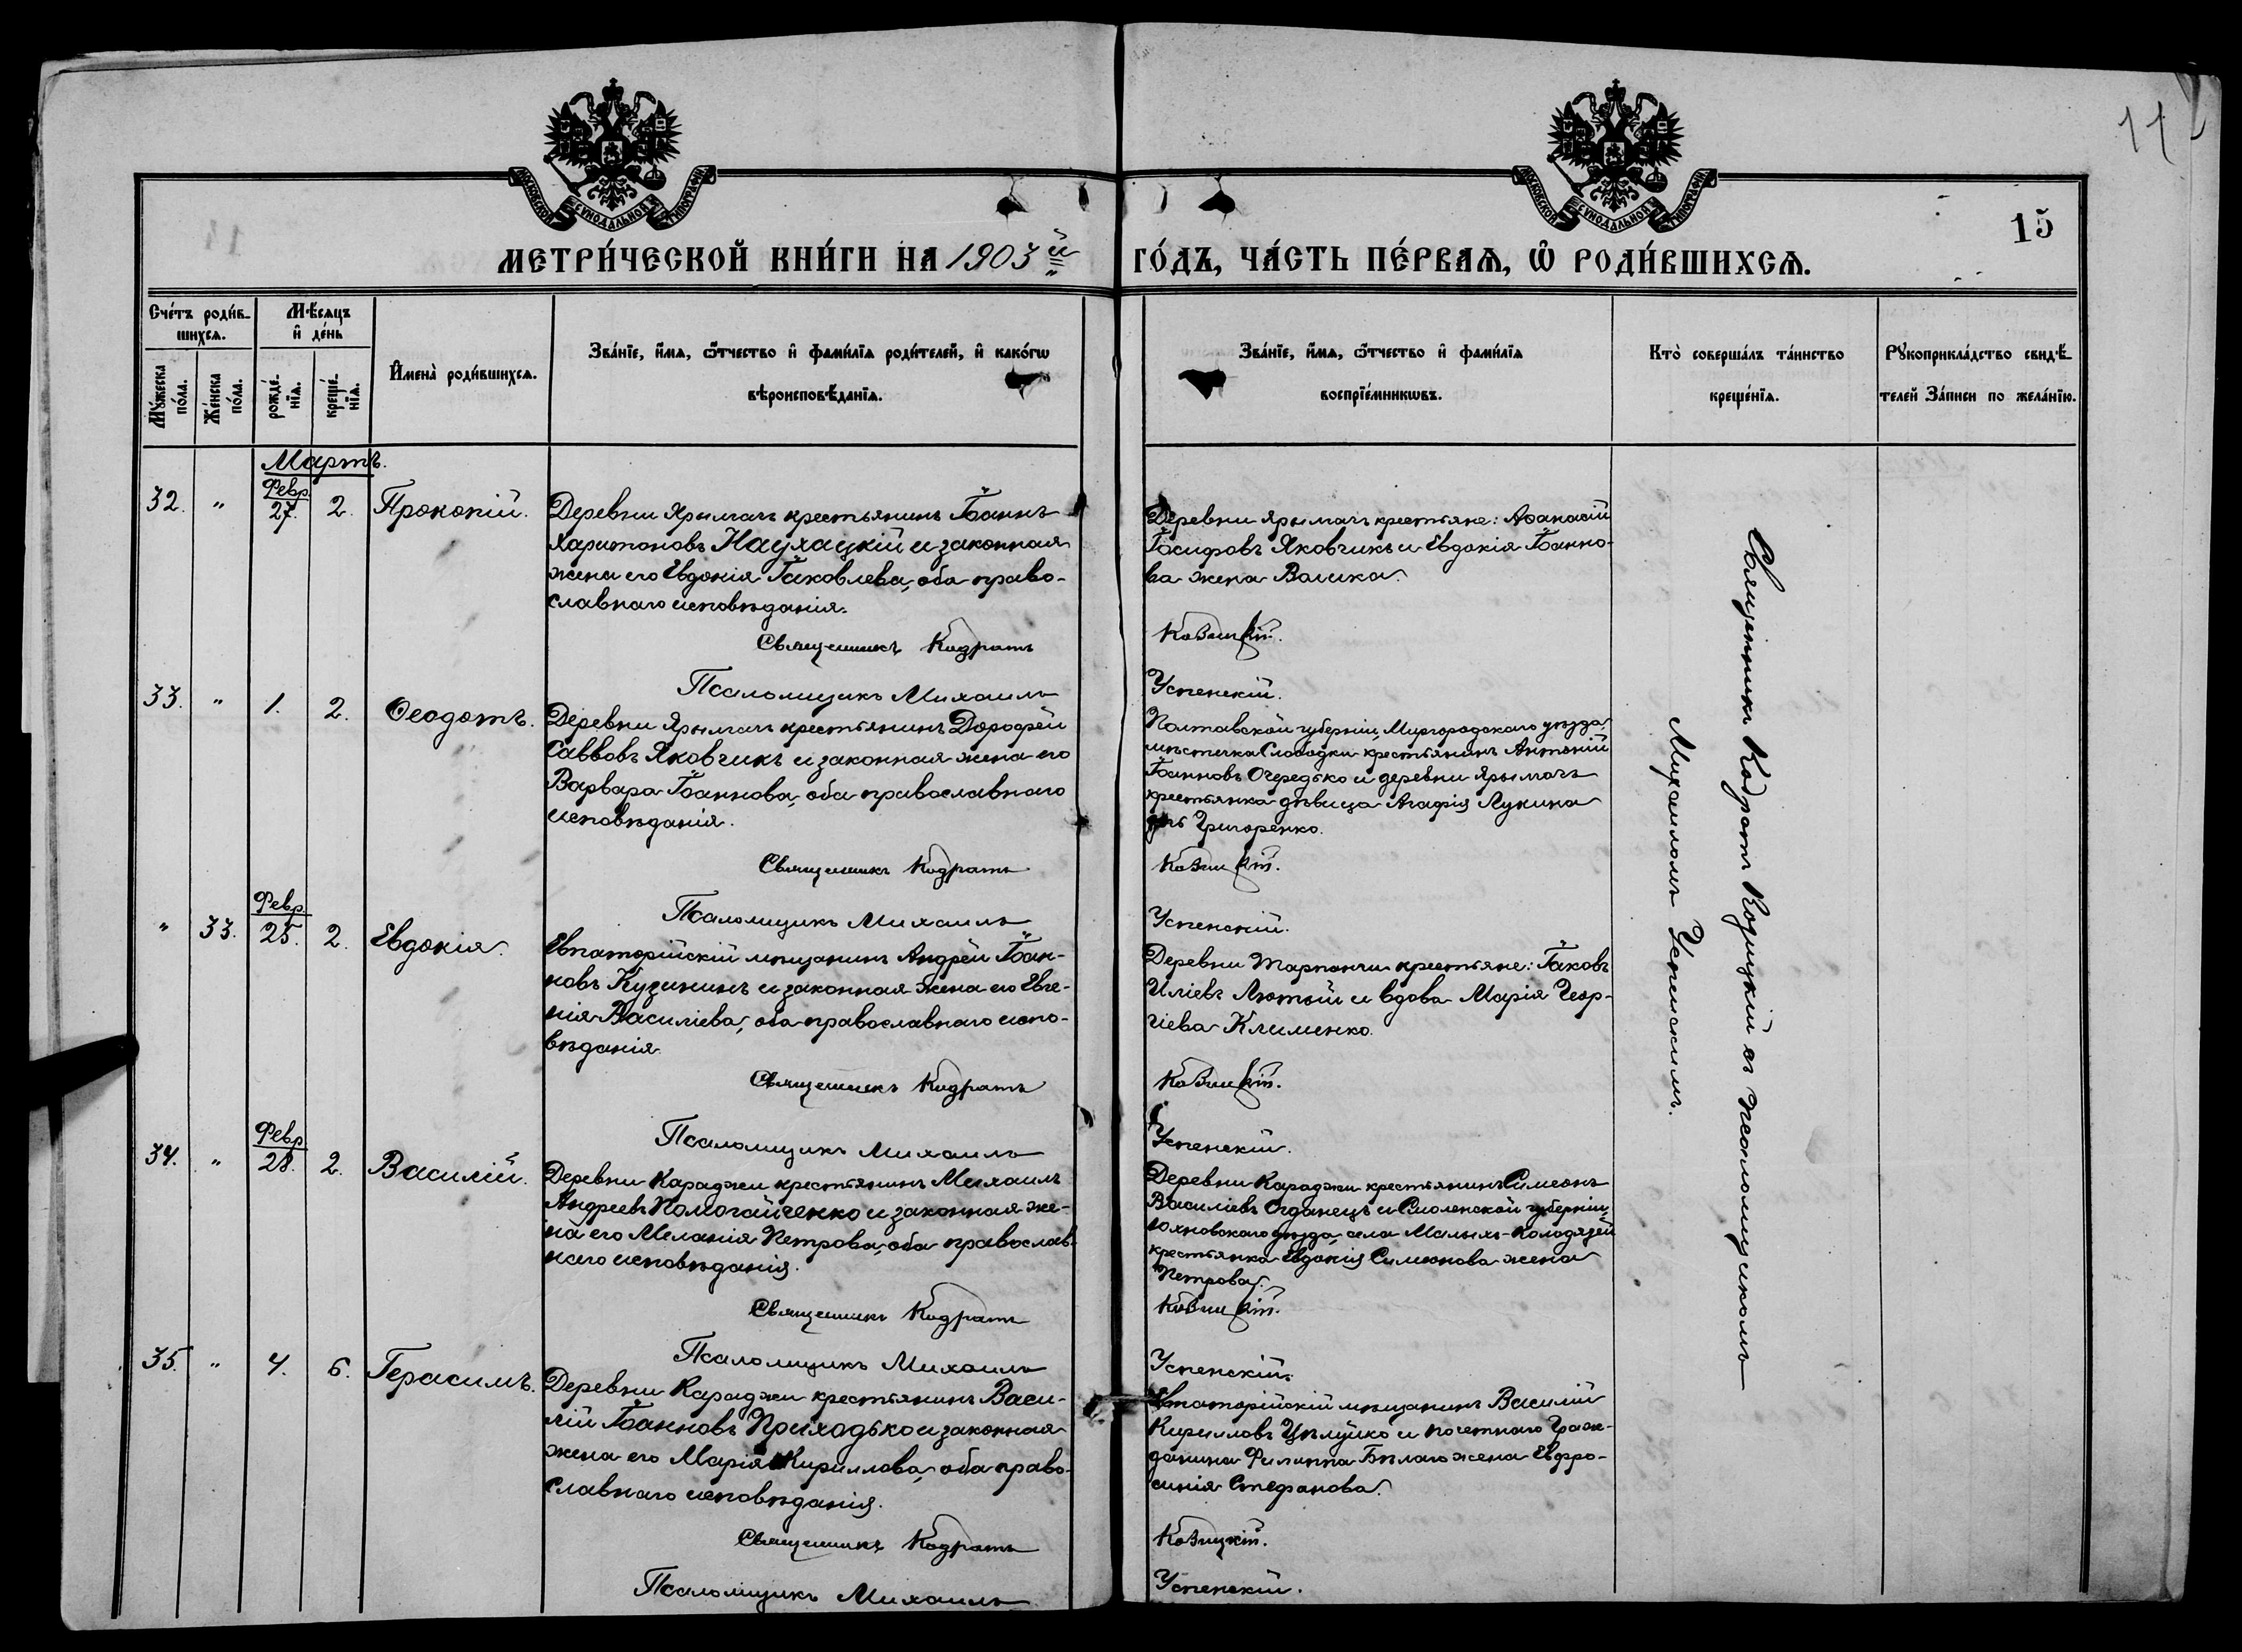 11
15
МОСКОВСКОЙ СѴНОДАЛЬНОЙ ТИПОГРАФІИ
МОСКОВСКОЙ СѴНОДАЛЬНОЙ ТИПОГРАФІИ
МЕТРИ́ЧЕСКОЙ КНИ́ГИ НА 1903й ГО́ДЪ, ЧА́СТЬ ПЕ́РВАѦ, Ѡ҆ РОДИ́ВШИХСѦ.
Сче́тъ роди́в-
шихсѧ.
Мꙋ́жеска по́ла.
Же́нска по́ла.
Мѣ́сѧцъ
и҆ де́нь
рожде́-
нїѧ.
креще́-
нїѧ.
И҆мена̀ роди́вшихсѧ.
Зва́нїе, и҆́мѧ, ѻ҆́тчество и҆ фами́лїѧ роди́телей, и҆ како́гѡ
вѣроисповѣ́данїѧ.
Зва́нїе, и҆́мѧ, ѻ҆́тчество и҆ фами́лїѧ
воспрїе́мникѡвъ.
Кто̀ соверша́лъ та́инство
креще́нїѧ.
Рꙋкоприкла́дство свидѣ́-
телей За́писи по жела́нїю.
Мартъ.
32. " Февр. 27. 2. Прокопій.
Деревни Ярымачъ крестьянинъ Іоаннъ
Харитоновъ Наухацкій и законная
жена его Евдокія Іаковлева, оба право-
славнаго исповѣданія.
Священникъ Кодратъ
Псаломщикъ Михаилъ
Деревни Ярымачъ крестьяне: Аѳанасій
Іосифовъ Яковчикъ и Евдокія Іоанно-
ва жена Волика.
Козицкій.
Успенскій.
33. " 1. 2. Ѳеодотъ.
Деревни Ярымачъ крестьянинъ Дорофей
Саввовъ Яковчикъ и законная жена его
Варвара Іоаннова, оба православнаго
исповѣданія.
Священникъ Кодратъ
Псаломщикъ Михаилъ
Полтавской губерніи, Миргородскаго уѣзда,
мѣстечка Слободки крестьянинъ Антоній
Іоанновъ Очередько и деревни Ярымачъ
крестьянка дѣвица Агафія Лукина
Григоренко.
Козицкій.
Успенскій.
" 33. Февр. 25. 2. Евдокія.
Евпаторійскій мѣщанинъ Андрей Іоан-
новъ Кузининъ и законная жена его Евге-
нія Василіева, оба православнаго испо-
вѣданія.
Священникъ Кодратъ
Псаломщикъ Михаилъ
Деревни Тарпанчи крестьяне: Іаковъ
Иліевъ Лютый и вдова Марія Геор-
гіева Клименко.
Козицкій.
Успенскій.
34. " Февр. 28. 2. Василій.
Деревни Караджи крестьянинъ Михаилъ
Андреевъ Помогайченко и законная же-
на его Меланія Петрова, оба православ-
наго исповѣданія.
Священникъ Кодратъ
Псаломщикъ Михаилъ
Деревни Караджи крестьянинъ Симеонъ
Василіевъ Огданецъ и Смоленской губерніи,
Юхновскаго уѣзда, села Малыхъ-Колодязей
крестьянка Евдокія Симеонова жена
Петрова.
Козицкій.
Успенскій.
35. " 4. 6. Герасимъ.
Деревни Караджи крестьянинъ Васи-
лій Іоанновъ Приходько и законная
жена его Марія Кириллова, оба право-
славнаго исповѣданія.
Священникъ Кодратъ
Псаломщикъ Михаилъ
Евпаторійскій мѣщанинъ Василій
Кирилловъ Цѣлуйко и почетнаго граж-
данина Филиппа Бѣлаго жена Евфро-
синія Стефанова.
Козицкій.
Успенскій.
Священникъ Кодратъ Козицкій съ псаломщикомъ
Михаиломъ Успенскимъ.